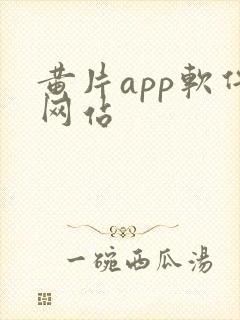 黄片app軟件
网站
一碗西瓜湯